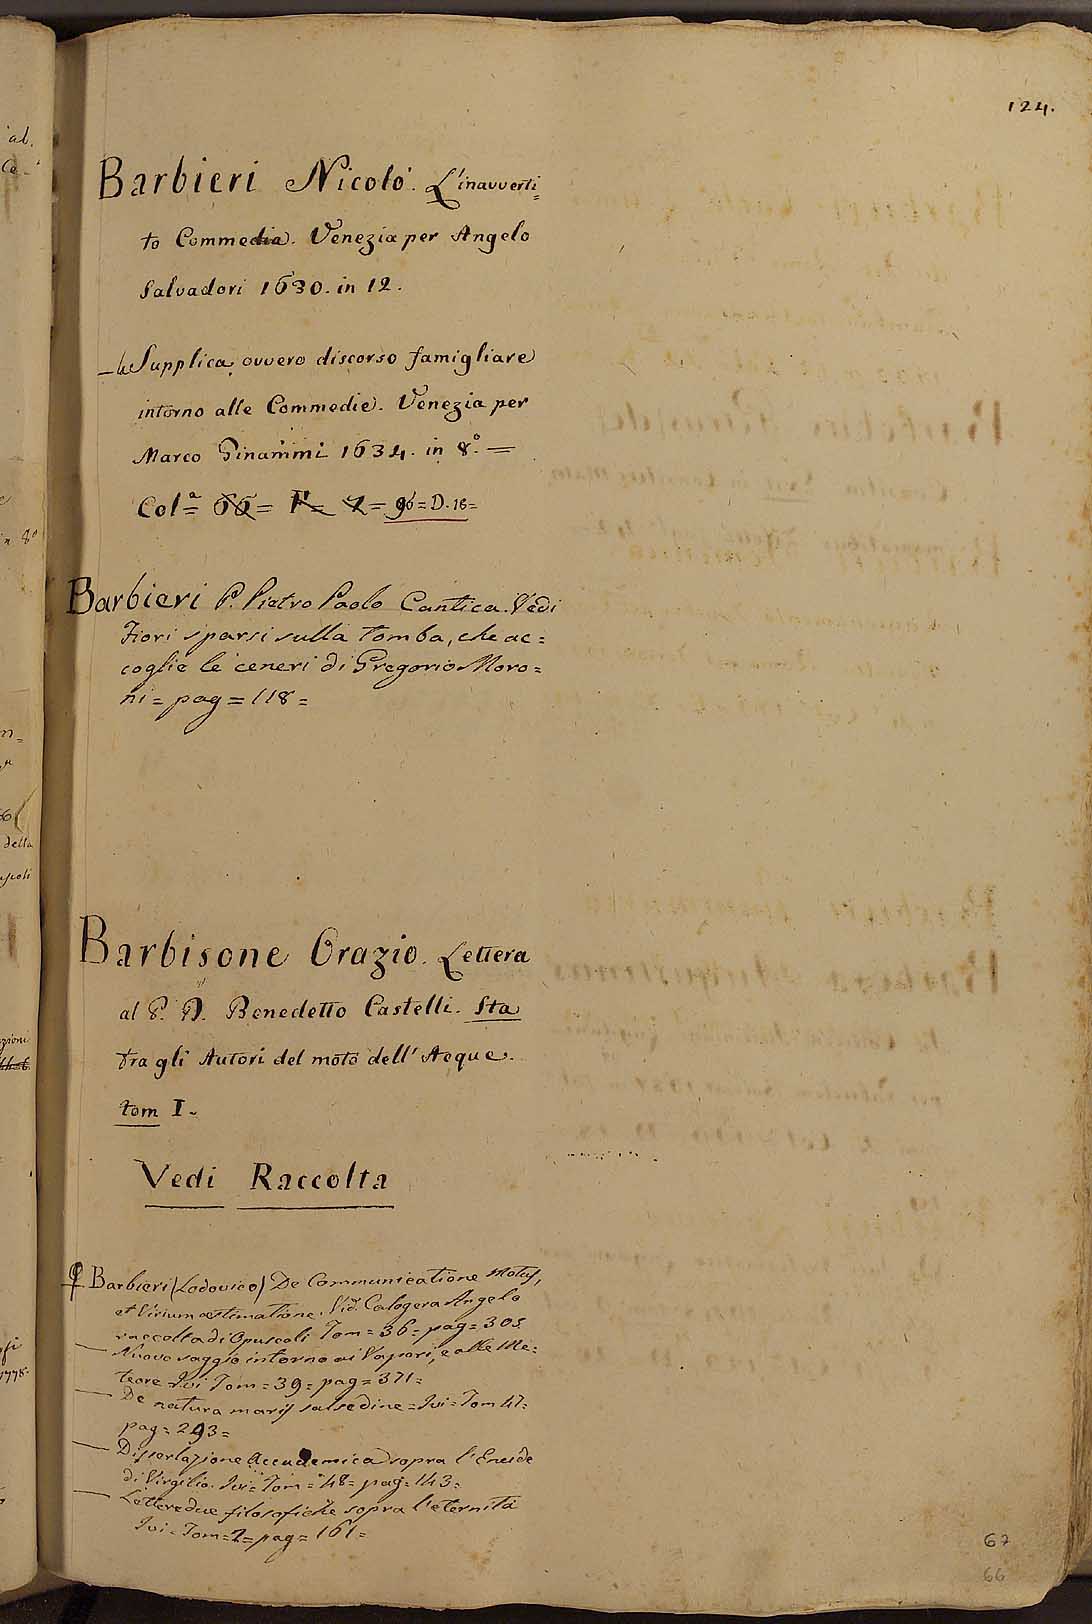 124.
Barbieri Nicolò. L'inavverti=
to Commedia. Venezia per Angelo
Salvadori 1630. in 12.
— la Supplica, ovvero discorso famigliare
intorno alle Commedie. Venezia per
Marco Ginammi 1634. in 8.° =
Col.ª = 66 = F = 2 = 96 = D. 18 =
Barbieri P. Pietro Paolo Cantica. Vedi
Fiori sparsi sulla tomba, che ac=
coglie le ceneri di Gregorio Moro=
ni = pag = 118 =
Barbisone Orazio. Lettera
al P. D. Benedetto Castelli. Sta
fra gli Autori del moto dell' Acque.
tom I.
Vedi Raccolta
Barbieri (Lodovico) De Communicatione Motus,
et Virium æstimatione. Vid. Calogera Angelo
raccolta di Opuscoli Tom = 36 = pag = 305
— Nuovo saggio intorno ai Vapori, e alle Me=
teore Ivi Tom = 39 = pag = 371 =
— De natura maris salsedine = Ivi = Tom 47 =
pag = 293 =
— Dissertazione Accademica sopra l'Eneide
di Virgilio. Ivi = Tom = 48 = pag = 143 =
— Lettere due filosofiche sopra l'eternità
Ivi = Tom = 2 = pag = 161 =
67
66